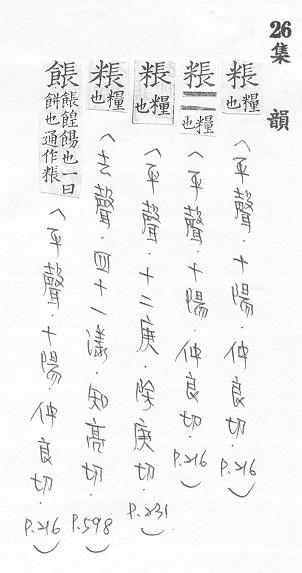 26集韻
粻糧也(平聲.十陽.仲良切.P.216)
粻二糧也(平聲.十陽.仲良切.P.216)
粻糧也(平聲.十二庚.除庚切.P.231)
粻糧也(去聲.四十一漾.知亮切.P.598)
餦餦餭餳也一曰餅也通作粻(平聲.十陽.仲良切.P.216)